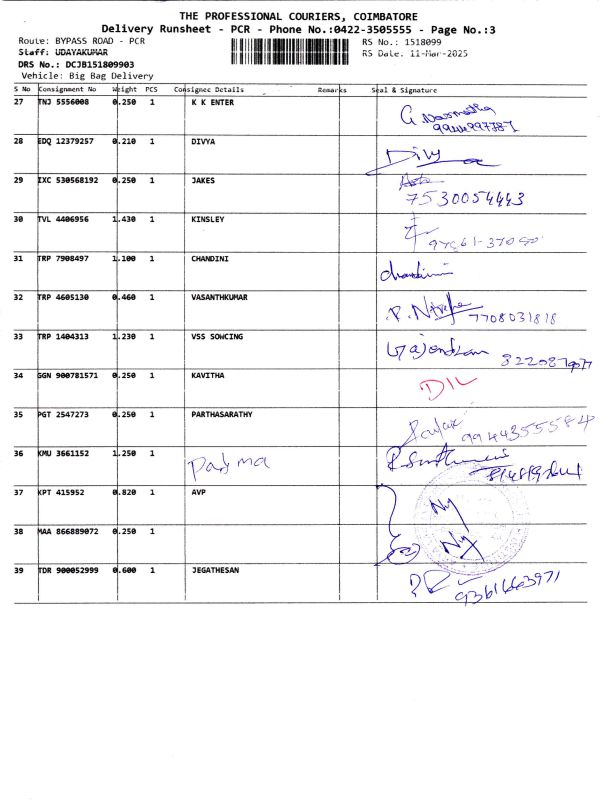 THE PROFESSIONAL COURIERS, COIMBATORE
Delivery Runsheet - PCR - Phone No.:0422-3505555 - Page No.:3
Route: BYPASS ROAD - PCR RS No.: 1518099
Staff: UDAYAKUMAR RS Date. 11-Mar-2025
DRS No.: DCJB151809903
Vehicle: Big Bag Delivery
S No Consignment No Weight PCS Consignee Details Remarks Seal & Signature
27 TNJ 5556008 0.250 1 K K ENTER
28 EDQ 12379257 0.210 1 DIVYA Divy
29 IXC 530568192 0.250 1 JAKES
7530054443
30 TVL 4406956 1.430 1 KINSLEY
31 TRP 7908497 1.100 1 CHANDINI chandini
32 TRP 4605130 0.460 1 VASANTHKUMAR 7708031818
33 TRP 1404313 1.230 1 VSS SOWCING
34 GGN 900781571 0.250 1 KAVITHA DIL
35 PGT 2547273 0.250 1 PARTHASARATHY 9944355584
36 KMU 3661152 1.250 1 Padma
37 KPT 415952 0.820 1 AVP
38 MAA 866889072 0.250 1
39 TDR 900052999 0.600 1 JEGATHESAN 9361663971